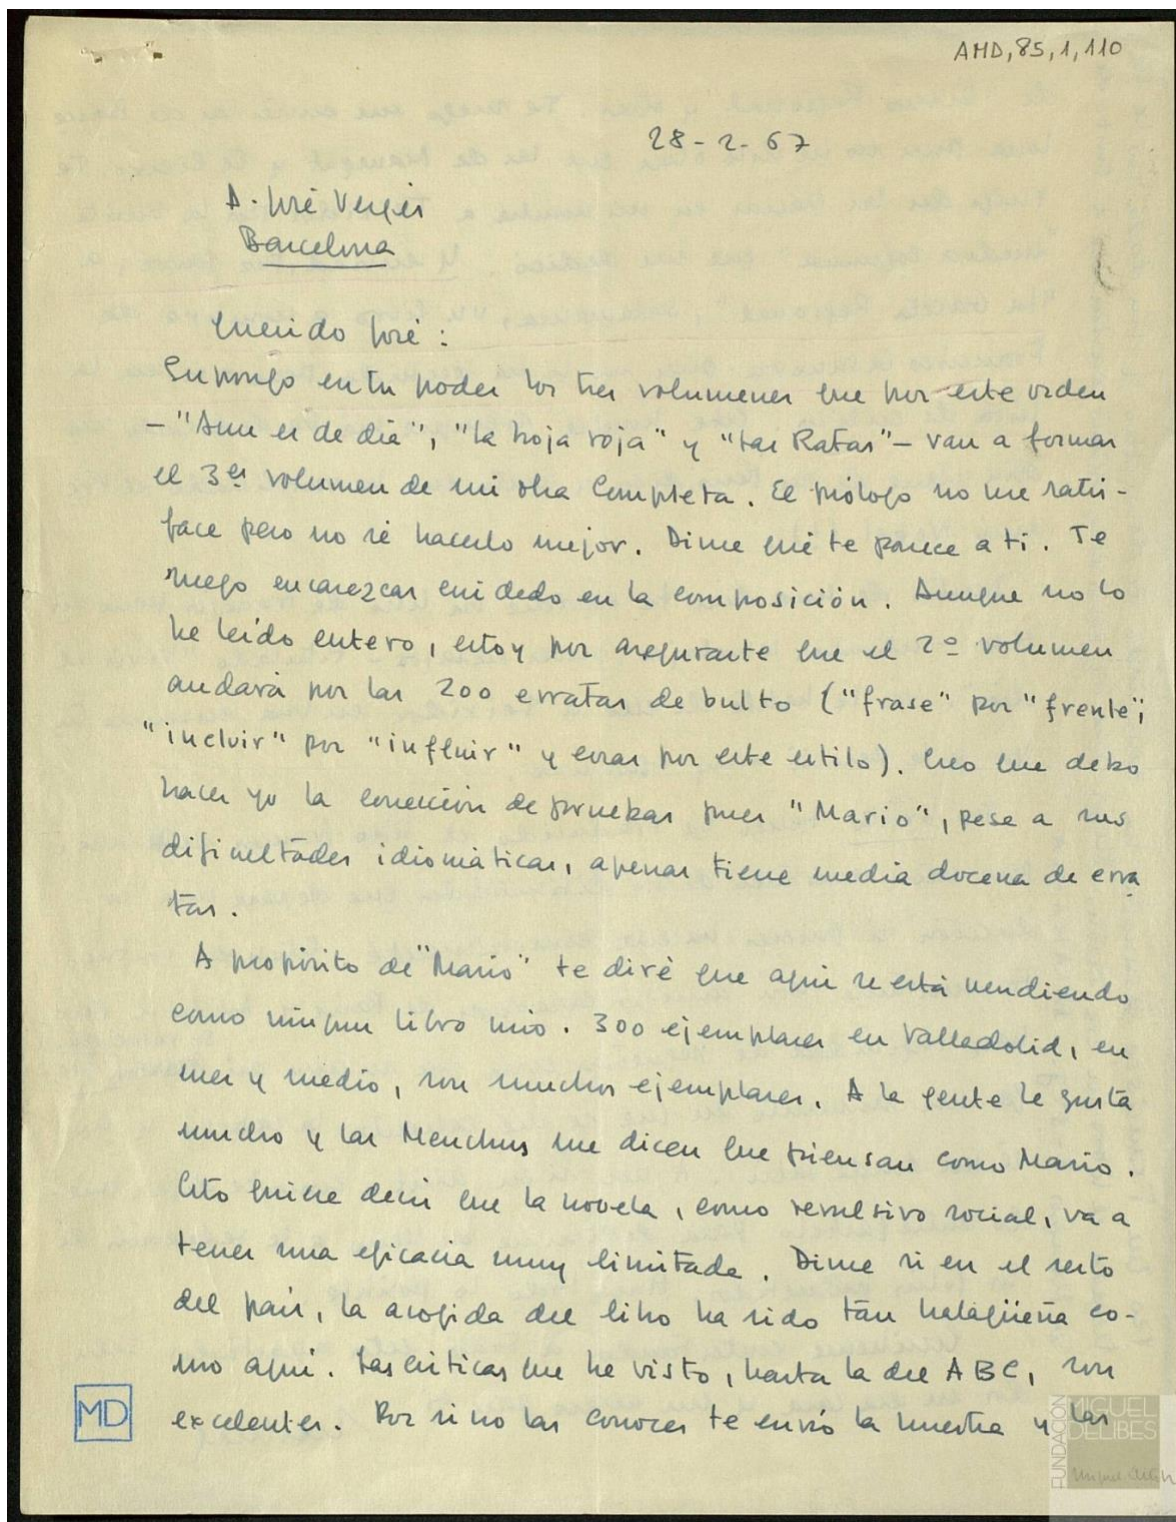 AMD, 85, 1, 110
28-2-67
D. José Vergés
Barcelona
Querido José:
Supongo en tu poder los tres volumenes que por este orden
-"Aun es de día", "La hoja roja" y "Las Ratas"- van a formar
el 3er volumen de mi Obra Completa. El prólogo no me satis-
face pero no sé hacerlo mejor. Dime qué te parece a ti. Te
ruego encarezcas cuidado en la composición. Aunque no lo
he leído entero, estoy por asegurarte que el 2º volumen
andará por las 200 erratas de bulto ("frase" por "frente";
"incluir" por "influir" y cosas por este estilo). Creo que debo
hacer yo la corrección de pruebas pues "Mario", pese a sus
dificultades idiomáticas, apenas tiene media docena de erra
tas.
A propósito de "Mario" te diré que aquí se está vendiendo
como ningun libro mío. 300 ejemplares en Valladolid, en
mes y medio, son muchos ejemplares. A la gente le gusta
mucho y las Menchus me dicen que piensan como Mario.
Esto quiere decir que la novela, como revulsivo social, va a
tener una eficacia muy limitada. Dime si en el resto
del país, la acogida del libro ha sido tan halagüeña co-
mo aquí. Las críticas que he visto, hasta la del ABC, son
excelentes. Por si no las conoces te envío la nuestra y las
MD
FUNDACIÓN
MIGUEL
DELIBES